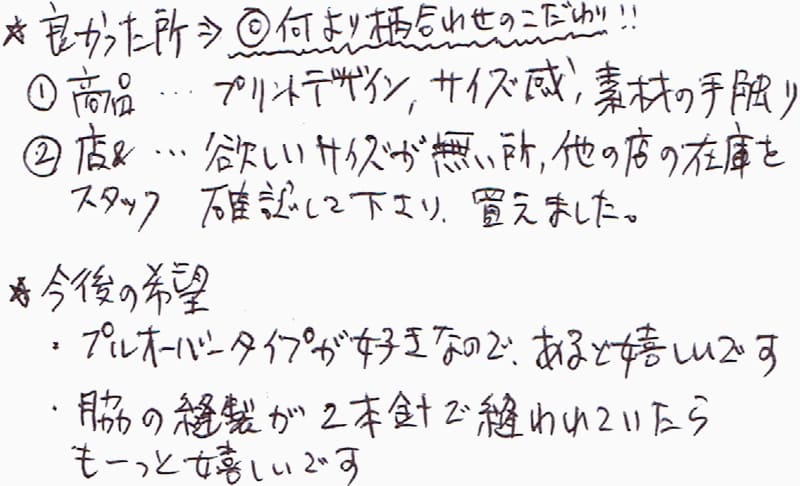 ★ 良かった所⇒ ◎何より柄合わせのこだわり!!
① 商品 … プリントデザイン, サイズ感, 素材の手触り
② 店& … 欲しいサイズが無い所, 他の店の在庫を
スタッフ 確認して下さり、買えました。
★ 今後の希望
・プルオーバータイプが好きなので、あると嬉しいです
・脇の縫製が2本針で縫われていたら
もーっと嬉しいです